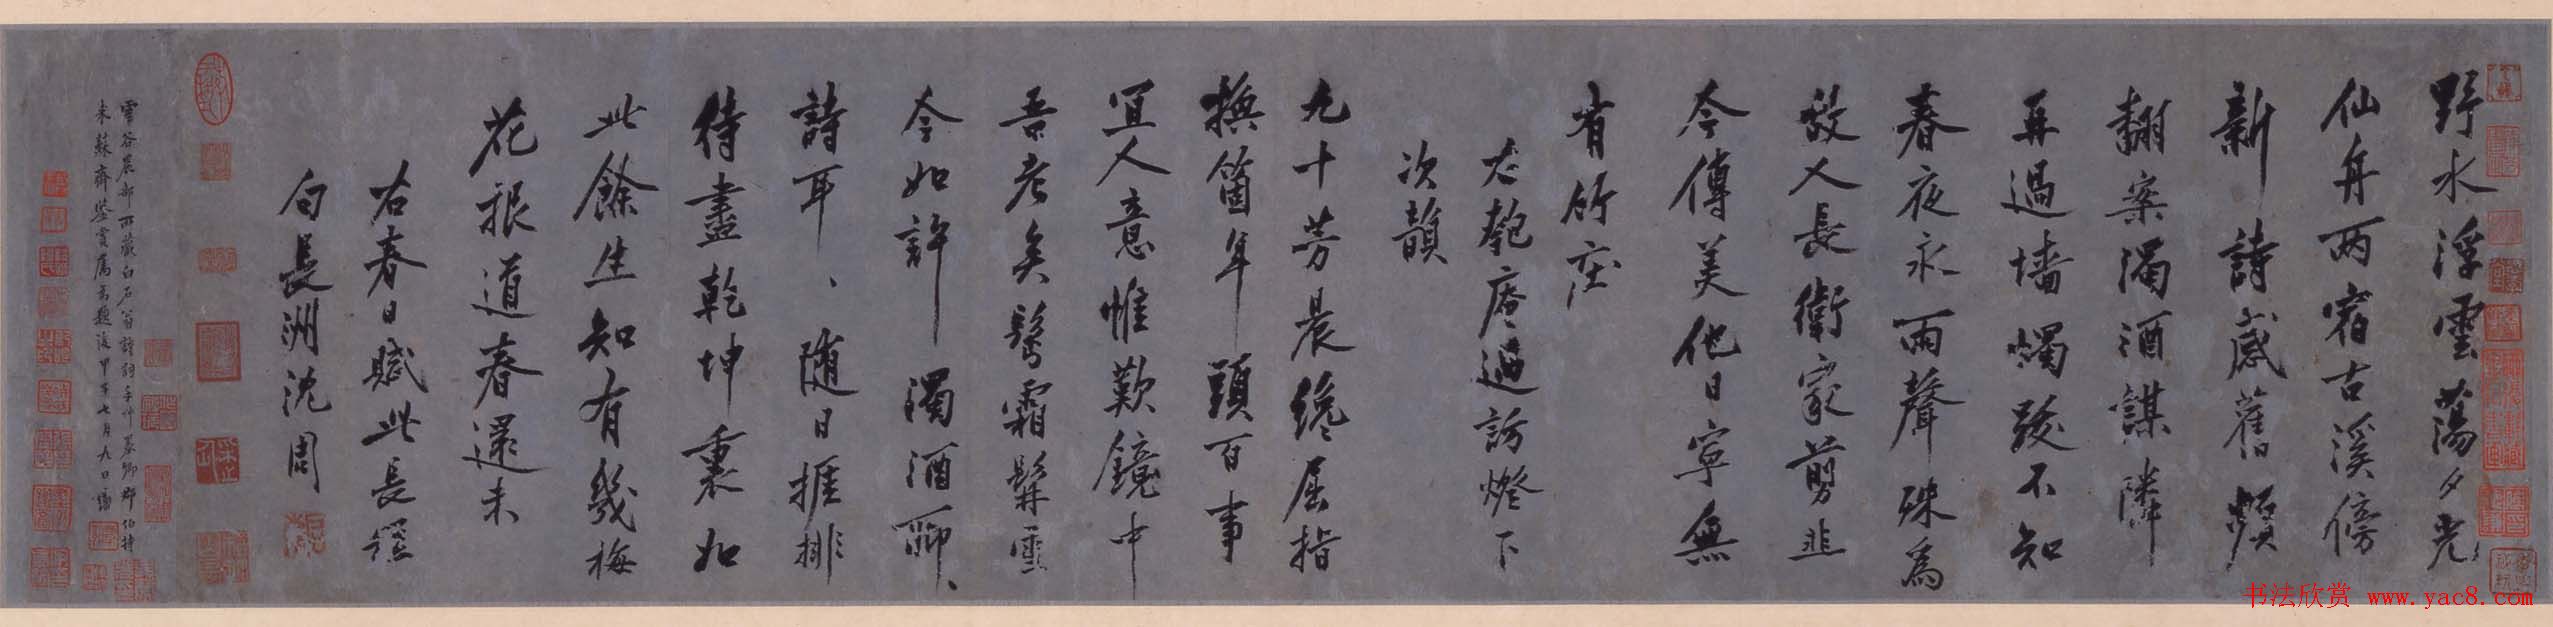 野水浮雲蕩夕光
仙舟两宿古溪傍
新詩感舊頻
翻案濁酒謀隣
再過墻燭跋不知
春夜永雨聲殊為
故人長衛家剪韭
今傳美他日寧無
有竹庄
匏庵過訪燈下
次韻
九十芳晨纔屈指
撫箇年頭百事
宜人意惟歎鏡中
吾老矣鬂霜髯雪
今如許濁酒聊、
詩耳、随日捱排
待盡乾坤裏如
此餘生知有幾梅
花報道春還未
右春日賦此長謡
向長洲沈周
雪谷農部所藏白石翁詩詞手卷
未蘇齋鑒賞屬為題後甲子七月九日
书法欣赏 www.yac8.com